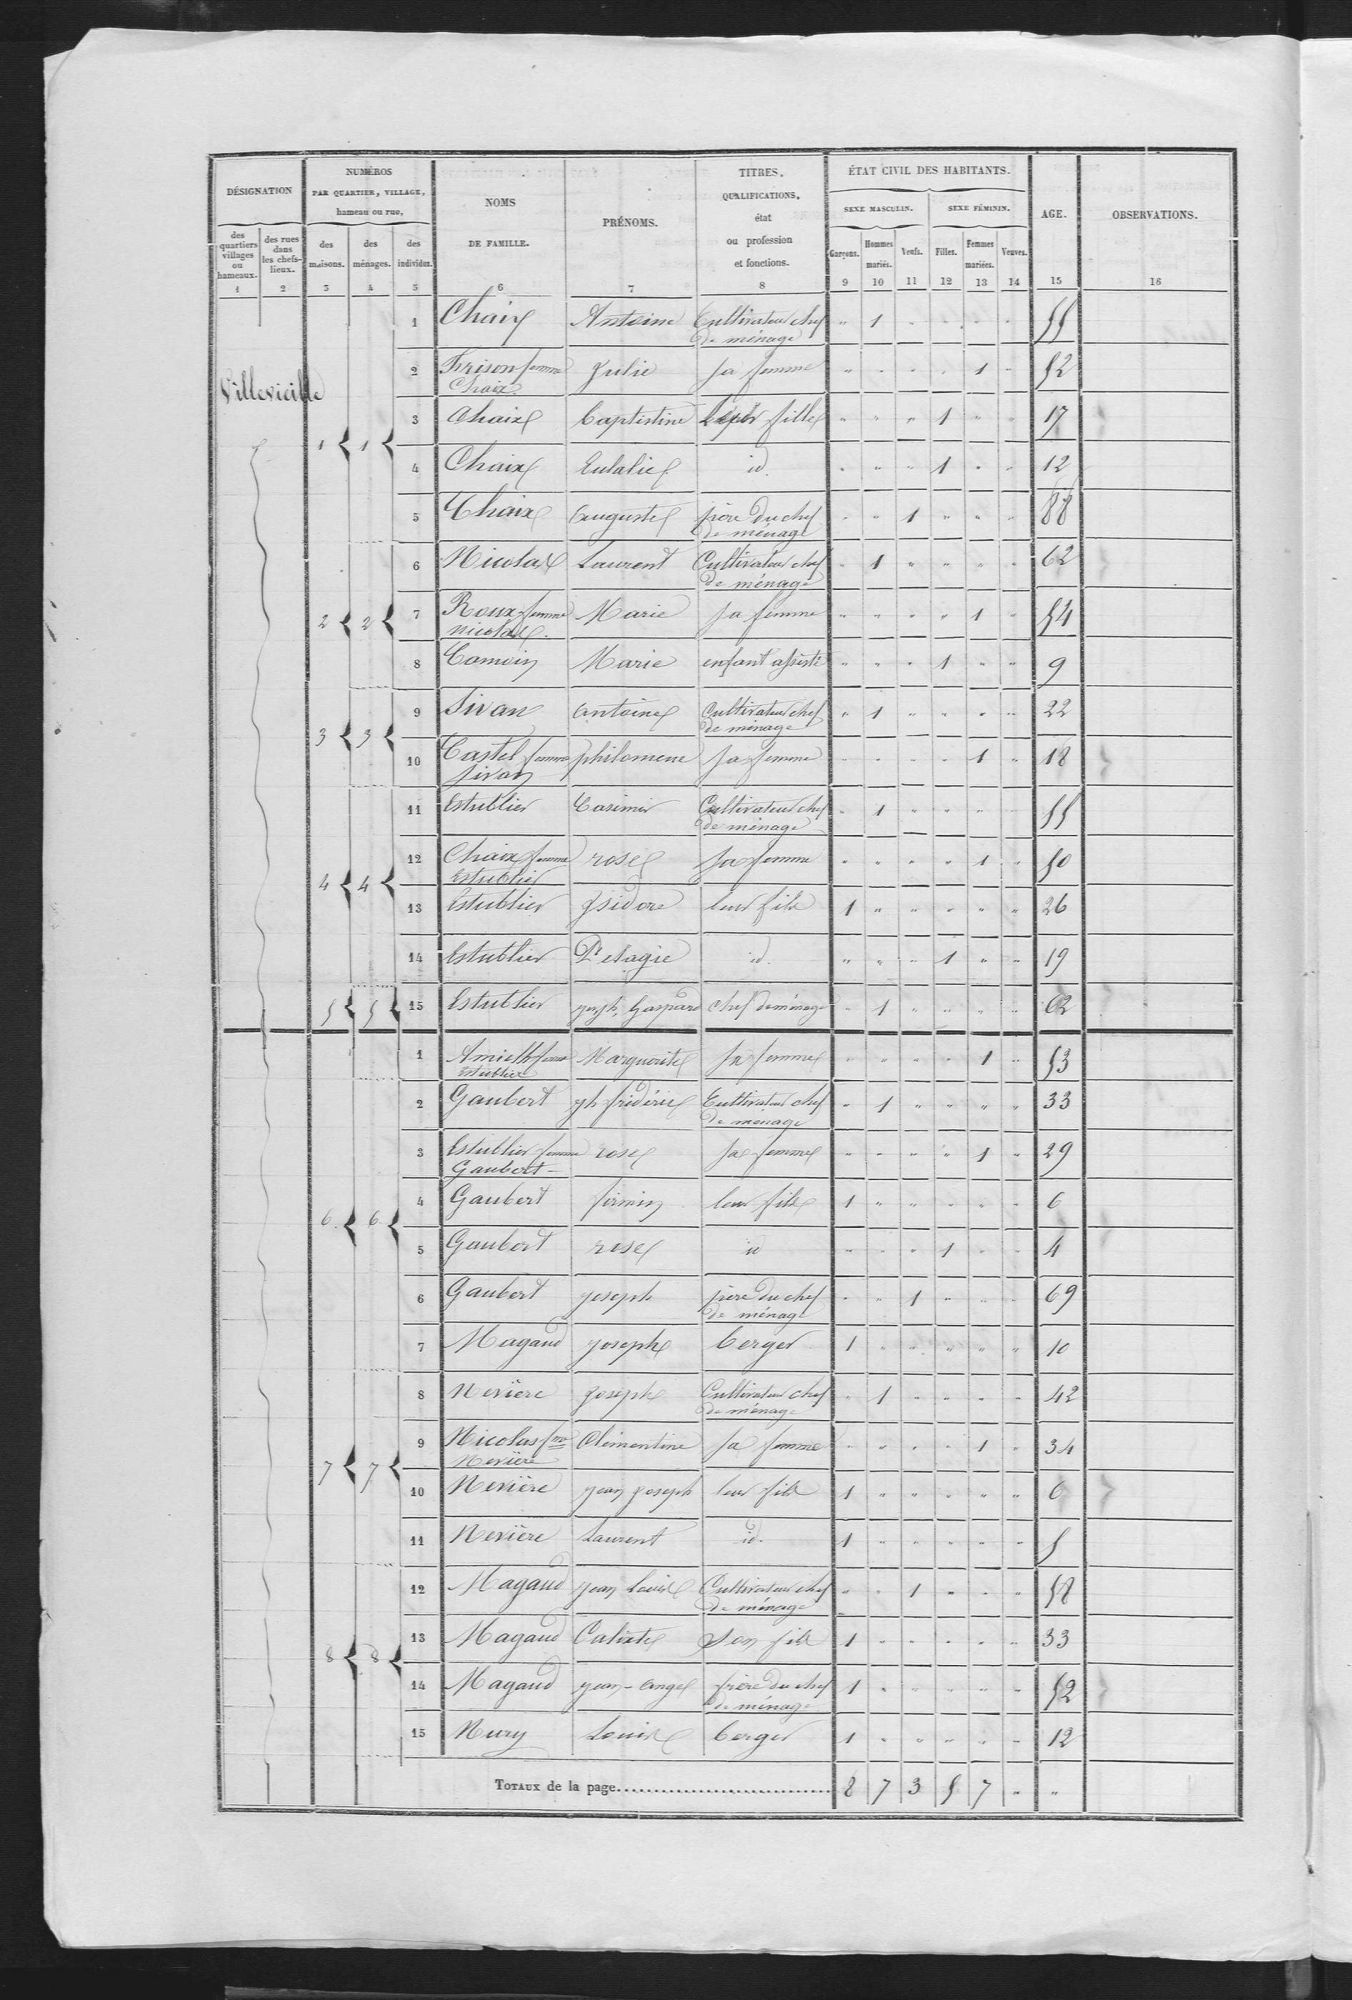 DÉSIGNATION
NUMÉROS
PAR QUARTIER, VILLAGE,
hameau ou rue,
NOMS
DE FAMILLE.
PRÉNOMS.
TITRES,
QUALIFICATIONS,
état
ou profession
et fonctions.
ÉTAT CIVIL DES HABITANTS.
SEXE MASCULIN. SEXE FÉMININ.
AGE.
OBSERVATIONS.
des quartiers villages ou hameaux. des rues dans les chefs-lieux. des maisons. des ménages. des individus. Garçons. Hommes mariés. Veufs. Filles. Femmes mariées. Veuves.
1 2 3 4 5 6 7 8 9 10 11 12 13 14 15 16
Villevieille
1 1
1 Chaix Antoine Cultivateur chef de ménage " 1 " " " " 55
2 Frison femme Chaix Julie sa femme " " " " 1 " 52
3 Chaix Baptistine leur fille " " " 1 " " 17
4 Chaix Eulalie id. " " " 1 " " 12
5 Chaix Auguste père du chef de ménage " " 1 " " " 88
2 2
6 Nicolas Laurent Cultivateur chef de ménage " 1 " " " " 62
7 Roux femme Nicolas. Marie sa femme " " " " 1 " 54
8 Camoin Marie enfant assisté " " " 1 " " 9
3 3
9 Sivan antoine Cultivateur chef de ménage " 1 " " " " 22
10 Castel femme Sivan philomene sa femme " " " " 1 " 18
4 4
11 Estublier Casimir Cultivateur chef de ménage " 1 " " " " 55
12 Chaix femme Estublier rose sa femme " " " " 1 " 50
13 Estublier Isidore leur fils 1 " " " " " 26
14 Estublier Pelagie id. " " " 1 " " 19
5 5
15 Estublier Gaspard chef de ménage " 1 " " " " 62
1 Estublier Marguerite sa femme " " " " 1 " 53
6 6
2 Gaubert jh frédéric Cultivateur chef de ménage " 1 " " " " 33
3 Estublier femme Gaubert rose sa femme " " " " 1 " 29
4 Gaubert firmin leur fils 1 " " " " " 6
5 Gaubert rose id " " " 1 " " 4
6 Gaubert joseph père du chef de ménage " " 1 " " " 69
7 Magaud joseph berger 1 " " " " " 10
7 7
8 Nevière joseph Cultivateur chef de ménage " 1 " " " " 42
9 Nicolas fme Nevière Clémentine sa femme " " " " 1 " 34
10 Nevière jean joseph leur fils 1 " " " " " 6
11 Nevière Laurent id. 1 " " " " " 5
8 8
12 Magaud jean Louis Cultivateur chef de ménage " " 1 " " " 58
13 Magaud Calixte Son fils 1 " " " " " 33
14 Magaud jean-ange frère du chef de ménage 1 " " " " " 52
15 Nury Louis berger 1 " " " " " 12
TOTAUX de la page 8 7 3 5 7 " "